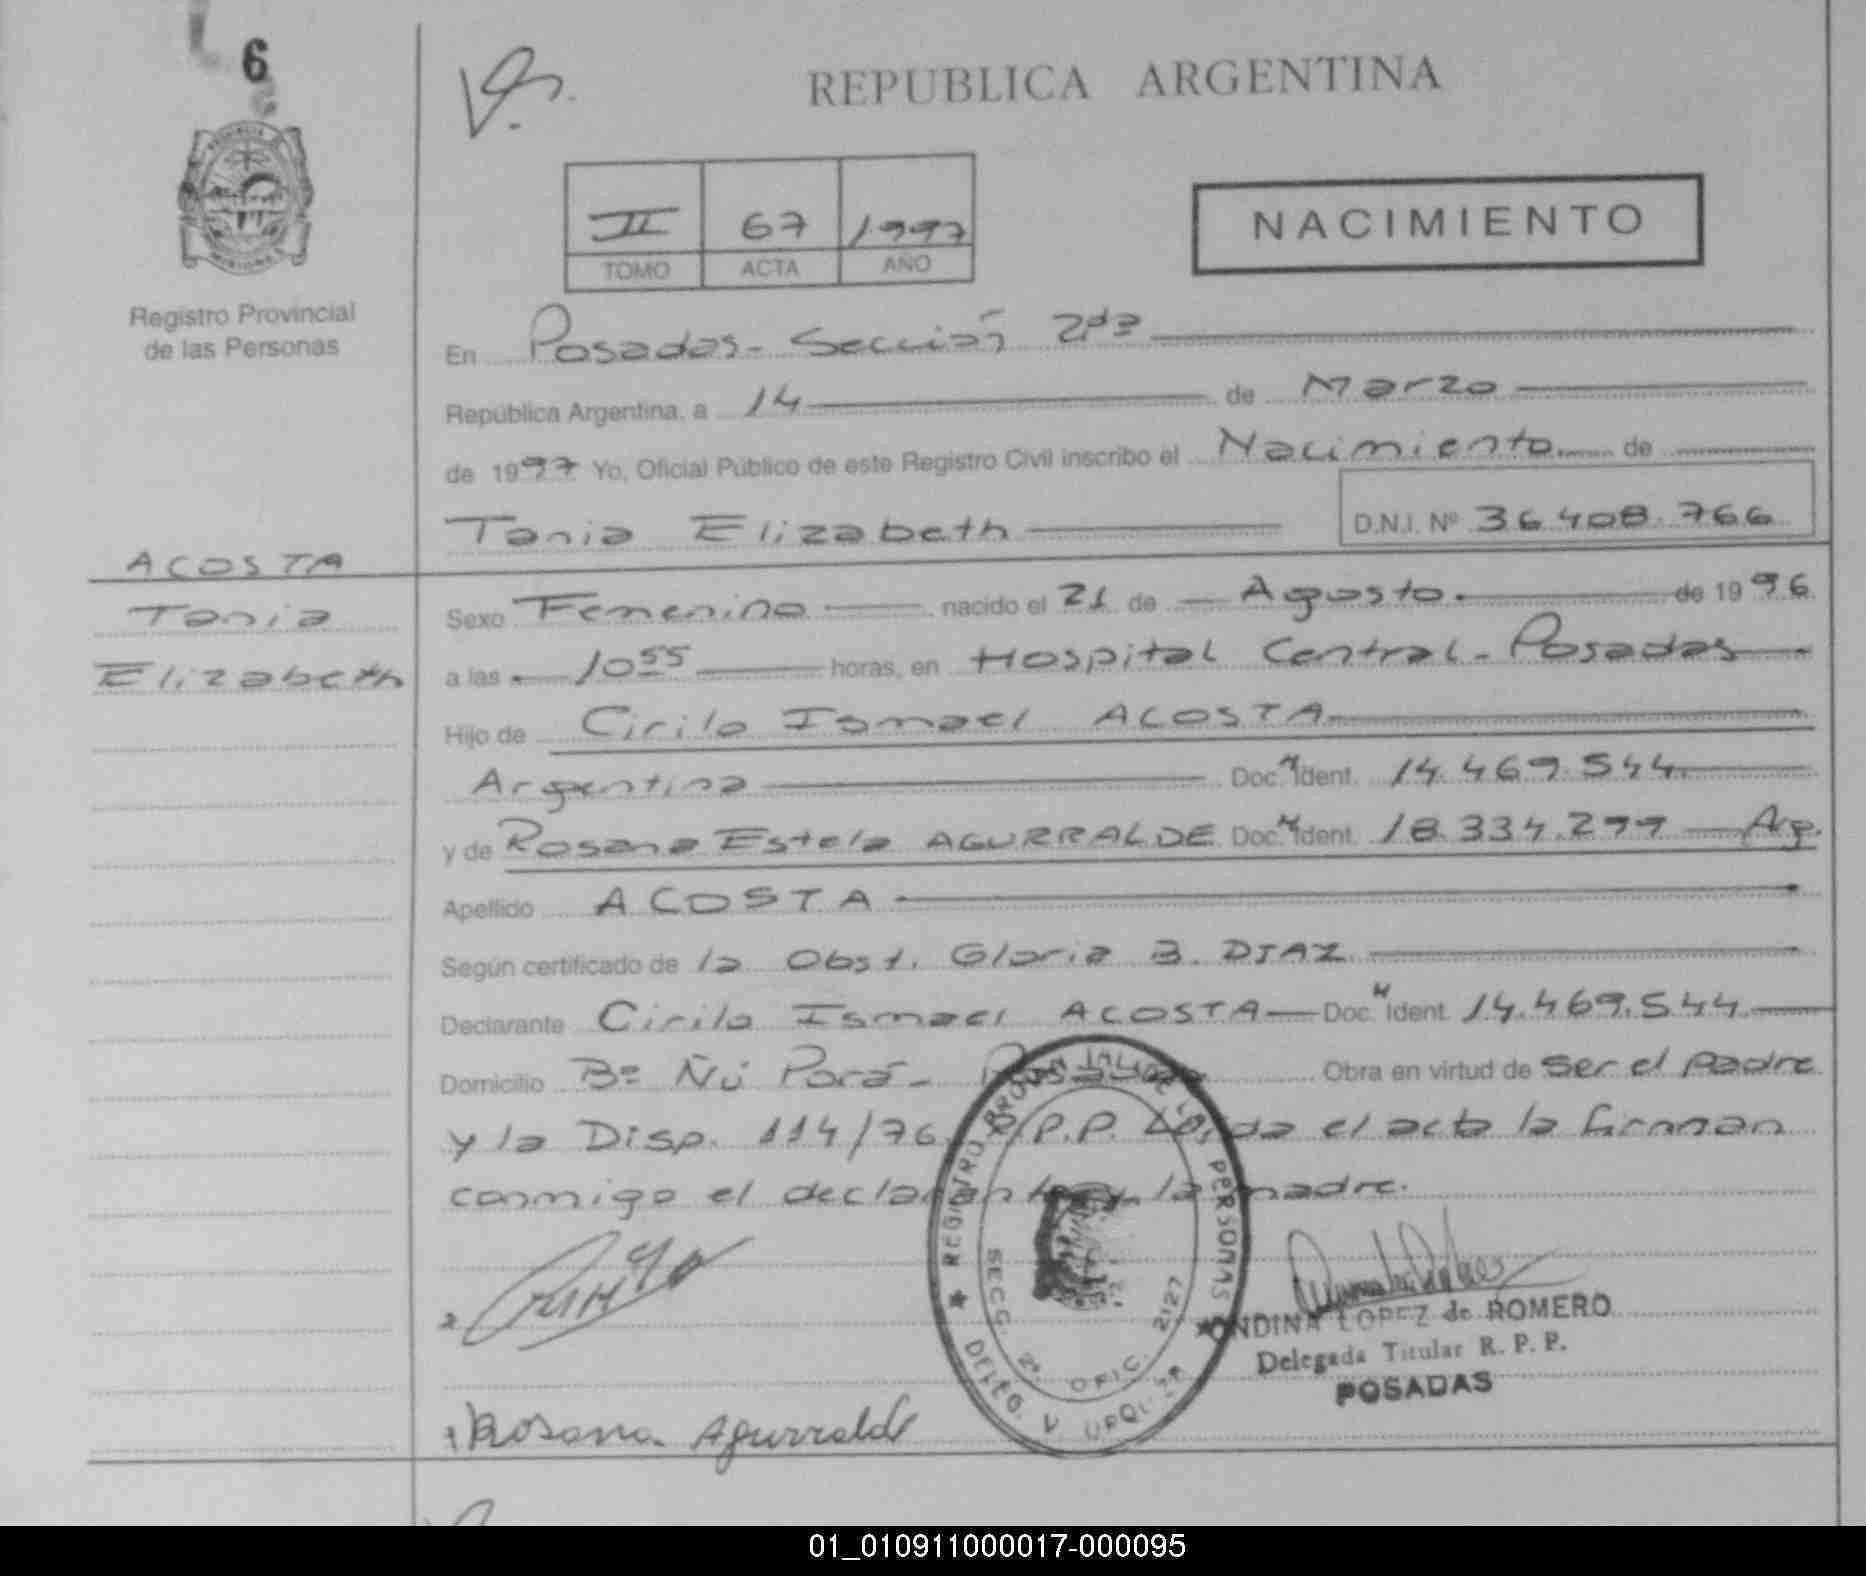 6
REPUBLICA ARGENTINA
II 67 1997
TOMO ACTA AÑO
NACIMIENTO
Registro Provincial
de las Personas
En Posadas - Sección 2da
República Argentina, a 14 de Marzo
de 1997 Yo, Oficial Público de este Registro Civil inscribo el Nacimiento de
Tania Elizabeth D.N.I. Nº 36.408.766
ACOSTA
Tania
Elizabeth
Sexo Femenino nacido el 21 de Agosto de 1996
a las 10 55 horas, en Hospital Central - Posadas
Hijo de Cirilo Ismael ACOSTA
Argentina Doc. Ident. 14.469.544
y de Rosana Estela AGURRALDE Doc. Ident. 18.334.299 Arg.
Apellido ACOSTA
Según certificado de la Obst. Gloria B. DIAZ
Declarante Cirilo Ismael ACOSTA Doc. Ident. 14.469.544
Domicilio Bº Ñú Porá - Posadas Obra en virtud de ser el padre
y la Disp. 114/76 R.P.P. Leída el acta la firman
conmigo el declarante y la madre.
REGISTRO PROVINCIAL DE LAS PERSONAS
SECC. 2ª OFIC. 2127
DELEG. V. URQUIZA
ONDINA LOPEZ de ROMERO
Delegada Titular R. P. P.
POSADAS
Rosana Agurralde
01_010911000017-000095